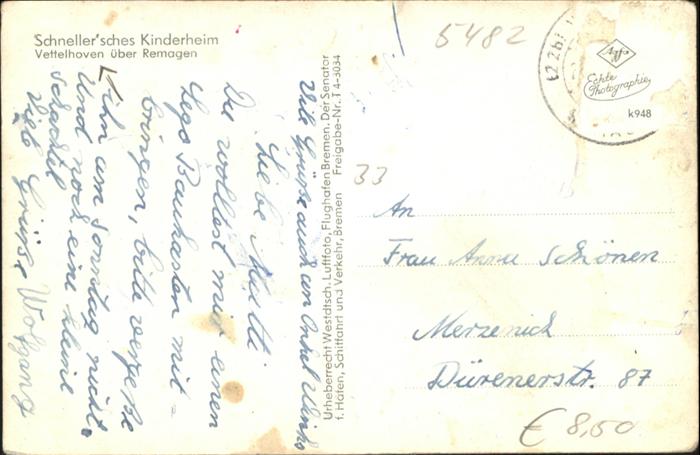 Schneller'sches Kinderheim
Vettelhoven über Remagen
Liebe Mutti
Du wolltest mir einen
Lego Baukasten mit-
bringen, bitte vergesse
ihn am Sonntag nicht.
Und noch eine kleine
Schachtel
Viele Grüße Wolfgang
Viele Grüße auch an Onkel
Urheberrecht Westdtsch. Luftfoto, Flughafen Bremen. Der Senator
f. Häfen, Schiffahrt und Verkehr, Bremen Freigabe-Nr. T 4-3034
5482
Agfa
Echte
Photographie
k948
33
An
Frau Anna Schönen
Merzenich
Dürenerstr. 87
€ 8,50